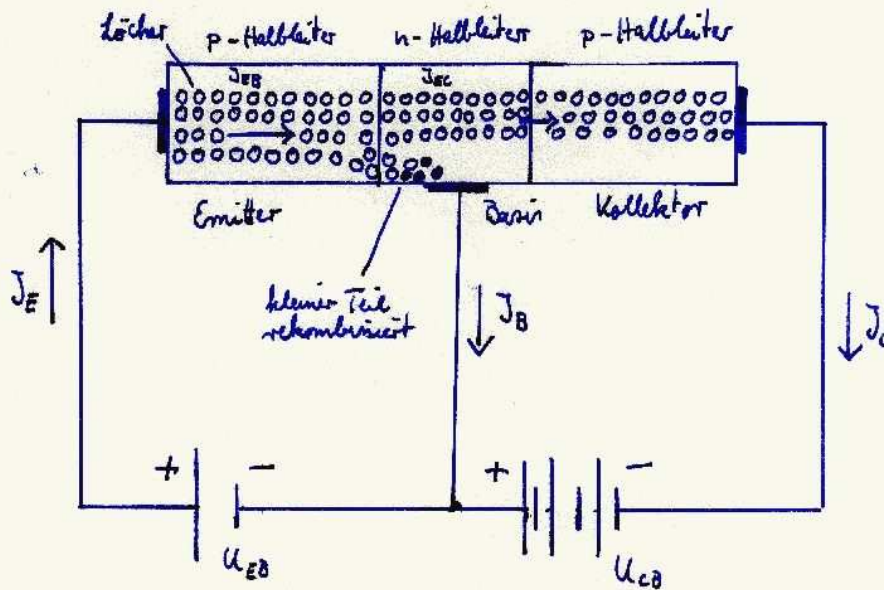 Löcher
p-Halbleiter n-Halbleiter p-Halbleiter
J_EB J_EC
Emitter Basis Kollektor
kleiner Teil
rekombiniert
J_E
J_B
+ - + -
U_EB
U_CB